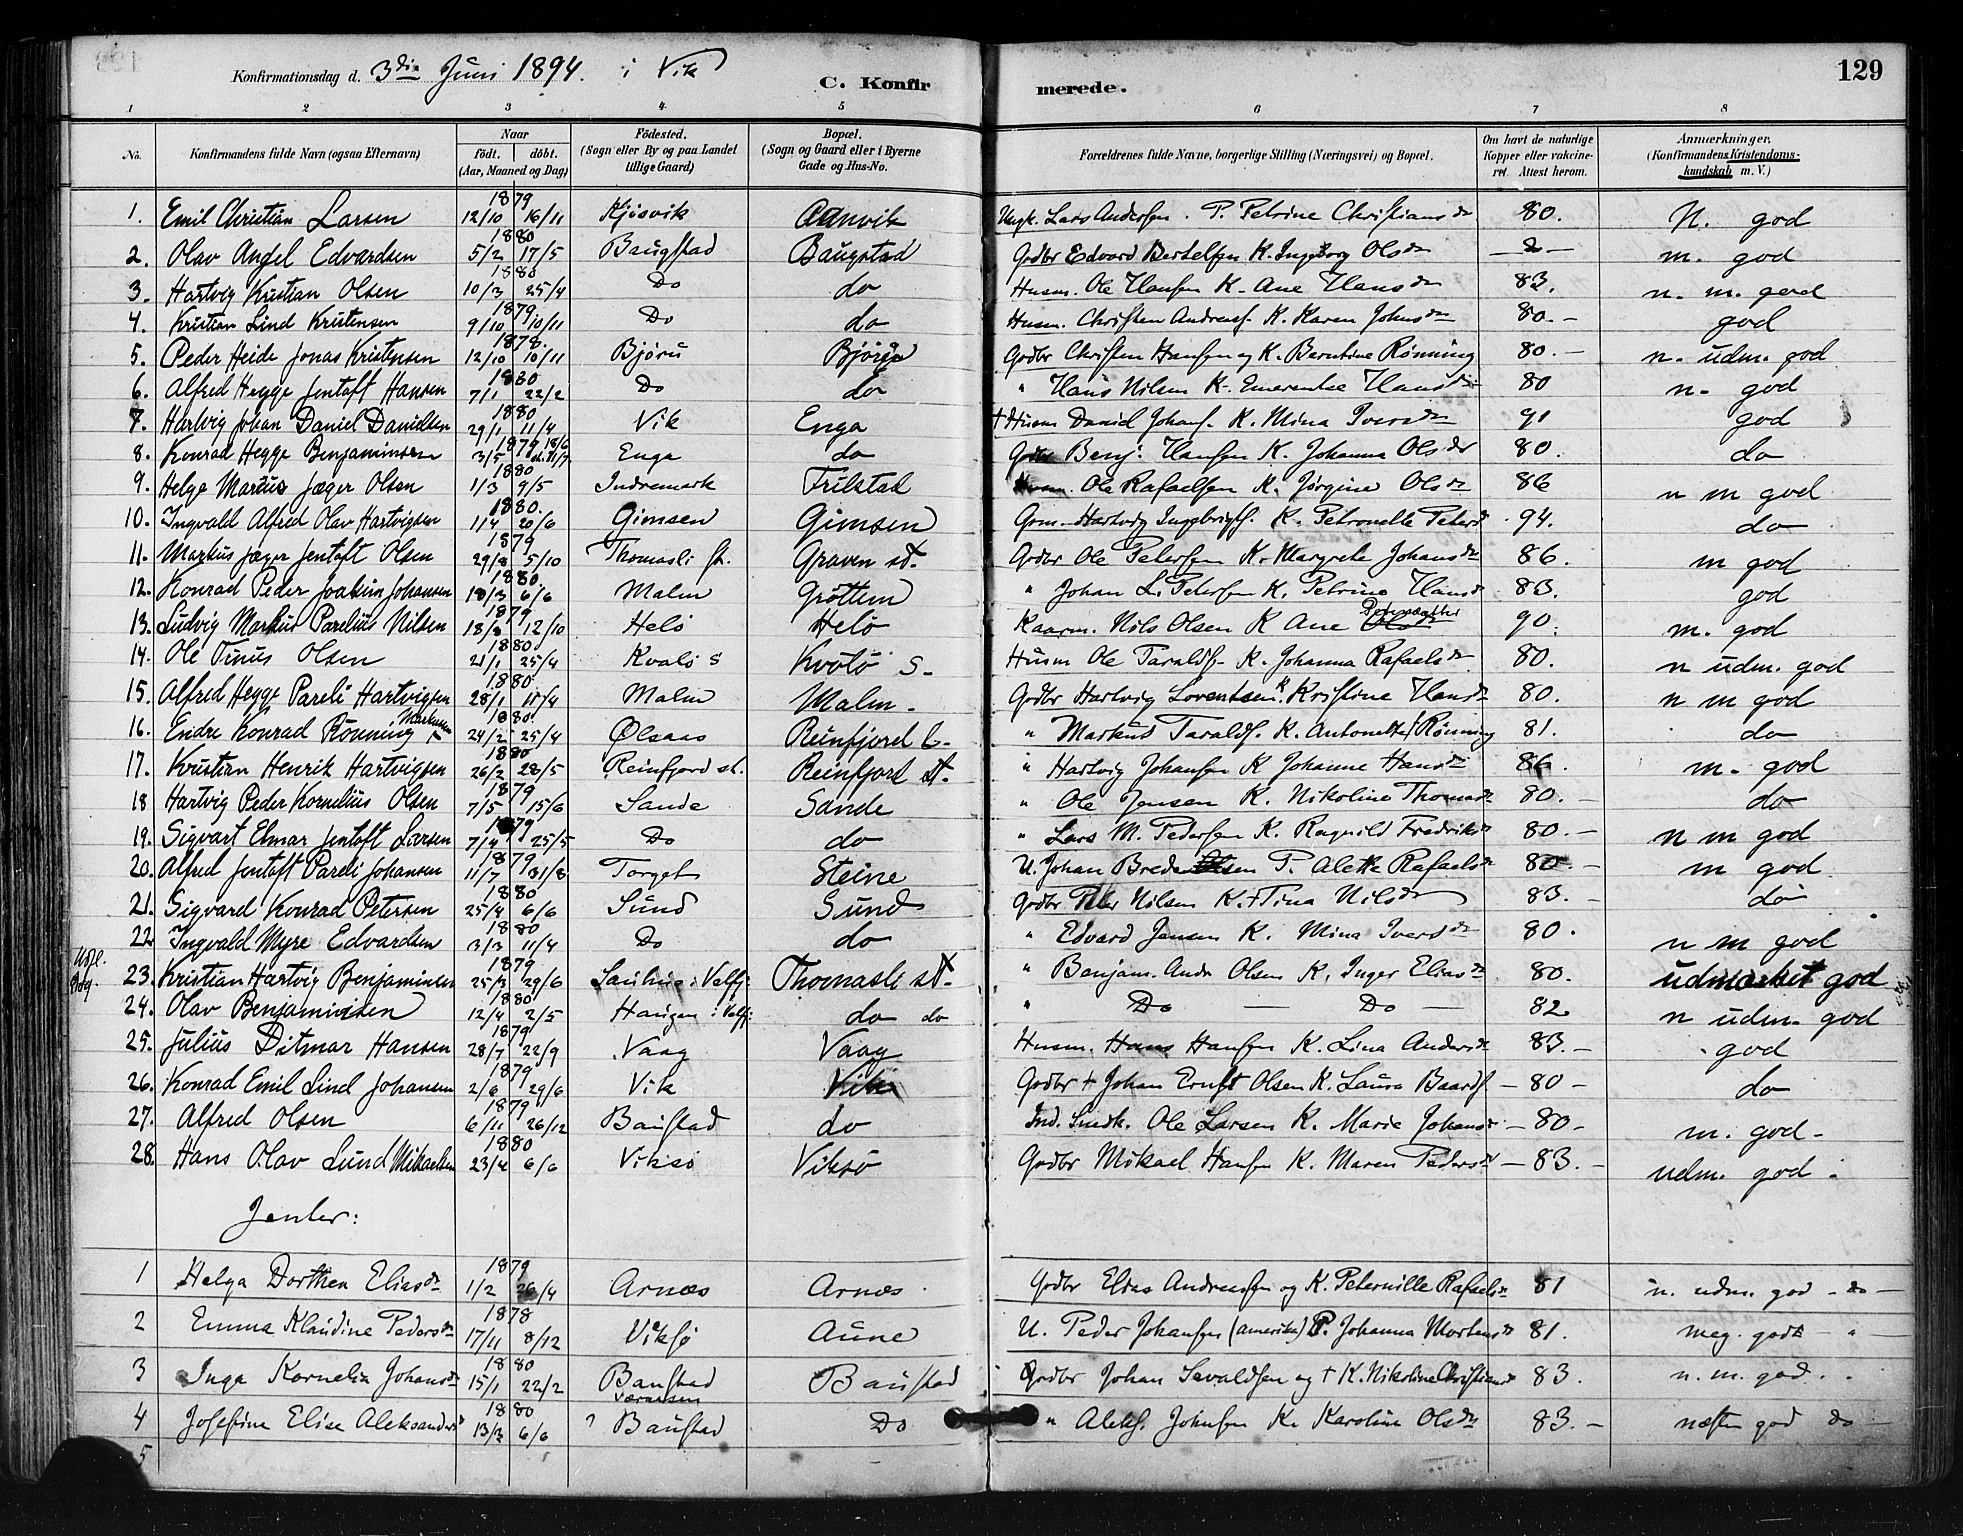 Konfirmationsdag d. 3die Juni 1894. i Vik C. Konfirmerede. 129
1 2 3 4 5 6 7 8
No. Konfirmandens fulde Navn (ogsaa Efternavn) Naar født. døbt. (Aar, Maaned og Dag) Födested. (Sogn eller By og paa Landet tillige Gaard) Bopæl. (Sogn og Gaard eller i Byerne Gade og Hus-No. Forældrenes fulde Navne, borgerlige Stilling (Næringsvei) og Bopæl. Om havt de naturlige Kopper eller vakcineret. Attest herom. Anmærkninger. (Konfirmandens Kristendomskundskab m. V.)
1. Emil Christian Larsen 1879 12/10 16/11 Kjösvik Aanvik Ungk. Lars Andersen. P. Petrine Christiansdr 80. N. god
2. Olav Angel Edvardsen 1880 5/2 17/5 Baugstad Baugstad Gdbr Edvard Bertelsen K. Ingeborg Olsdr — 2 — m. god
3. Hartvig Kristian Olsen 1880 10/3 25/4 Do do Husm. Ole Hansen K. Ane Hansdr 83. n. m. god
4. Kristian Lind Kristensen 1879 9/10 10/11 Do do Husm. Christen Andreas. K. Karen Johnsdr 80. — god
5. Peder Heide Jonas Kristensen 1878. 12/10 10/11 Bjørn Gdbr Christen Hansen og K. Berntine Rønning 80. — n. udm. god
6. Alfred Hegge Jentoft Hansen 1880 7/1 22/2 Do do " Hans Nilsen K. Emerentse Hansdr 80 n. god
7. Hartvig Johan Daniel Danielsen 1880 29/1 11/4 Vik Enga † Husm Daniel Johans. K. Mina Iversdr 91 god
8. Konrad Hegge Benjaminsen 1879 3/5 18/6 Enga do Benj. Hansen K. Johanna Olsdr 80. do
9. Helge Marius Jæger Olsen 1880 1/3 9/5 Indremark Trilstad Husm. Ole Rafaelsen K. Jørgine Olsdr 86 n m god
10. Ingvald Alfred Olav Hartvigsen 1880. 1/4 20/6 Gimsen Gimsen Hartvig Ingebrigts. K. Petronelle Peters 94. do
11. Markus Jæger Jentoft Olsen 1879 29/8 5/10 Thomasli st. Graven st. Gdbr Ole Petersen K. Margrete Johansdr 86. m god
12. Konrad Peder Joakim Johansen 1880 18/3 6/6 Malm Grøttem " Johan L. Petersen K. Petrine Hansdr 83. god
13. Ludvig Markus Parelius Nilsen 1879 18/8 12/10 Helø Helø Kaarm. Nils Olsen K Ane Olsdr 90. m. god
14. Ole Tinus Olsen 1880 21/1 25/4 Kvalø S Kvalø S. Husm Ole Taralds. K. Johanna Rafaelsdr 80. n udm. god
15. Alfred Hegge Pareli Hartvigsen 1880 28/1 11/4 Malm Malm. Gdbr Hartvig Lorentsen K. Kristine Hansdr 80. n m god
16. Endre Konrad Rönning Markussen 1880 24/2 25/4 Ølsaas Reinfjord l. " Markus Taralds. K. Antonette Rønning 81. do
17. Kristian Henrik Hartvigsen 1880 26/2 28/5 Reinfjord st. Reinfjord st. " Hartvig Johansen K Johanne Hansdr 86. m. god
18 Hartvig Peder Kornelius Olsen 1879 7/5 15/6 Sande Sande " Ole Jensen K. Nikoline Thomasdr 80. — do
19. Sigvart Elmar Jentoft Larsen 1879 7/4 25/5 Do do " Lars M. Pedersen K. Ragnild Fredriksdr 80. — n m god
20. Alfred Jentoft Pareli Johansen 1879 11/7 31/8 Torget Steine U. Johan Brede Olsen P. Alette Rafaelsdr 80. — m god
21. Sigvard Konrad Petersen 1880 25/4 6/6 Sund Sund Gdbr Peter Nilsen K. † Tina Nilsdr 83. — do
22. Ingvald Myre Edvardsen 1880 3/3 11/4 Do do " Edvard Jensen K. Mina Iversdr 80. n m god
23. Kristian Hartvig Benjaminsen 1879 25/3 29/6 i Velfj: Thomasli st. " Benjam. Andr Olsen K. Inger Eliasdr 80. udmærket god
24. Olav Benjaminsen 1880 12/4 2/5 Haugen i Velfj: do do " Do — Do — 82 n udm. god
25. Julius Ditmar Hansen 1879 28/7 22/9 Vaag Vaag Husm. Hans Hansen K. Lina Andersdr 83. — god
26. Konrad Emil Lind Johansen 1879 2/6 29/6 Vik Vik Gdbr † Johan Ernst Olsen K. Laura Baards. — 80 — do
27. Alfred Olsen 1879 6/11 26/12 Baustad do Ind. Snedk. Ole Larsen K. Marie Johansdr — 80 — m. god —
28. Hans Olav Lund Mikaelsen 1880 23/4 6/6 Viksø Viksø Gdbr Mikael Hansen K. Maren Pedersdr — 83. — udm. god.
Jenter:
1 Helga Dorthea Eliasdr 1879 1/2 26/4 Arnæs Arnæs. Gdbr Elias Andreassen og K. Peternille Rafaelsdr 81 n. udm. god — do —
2 Emma Klaudine Pedersdr 1878 17/11 8/12 Viksø Aune U. Peder Johansen (Amerika) P. Johanna Mortensdr 81. meg. godt — "
3 Inga Kornelia Johansdr 1880 15/1 22/2 Baustad Baustad Gdbr Johan Sevaldsen og † K. Nikoline Christiansdr 83. n. m. god. .
4 Josefine Elise Aleksandersd 1880 13/3 6/6 ? Baustad Do " Aleks. Johnsen K. Karoline Olsdr 83. — næsten god do
5